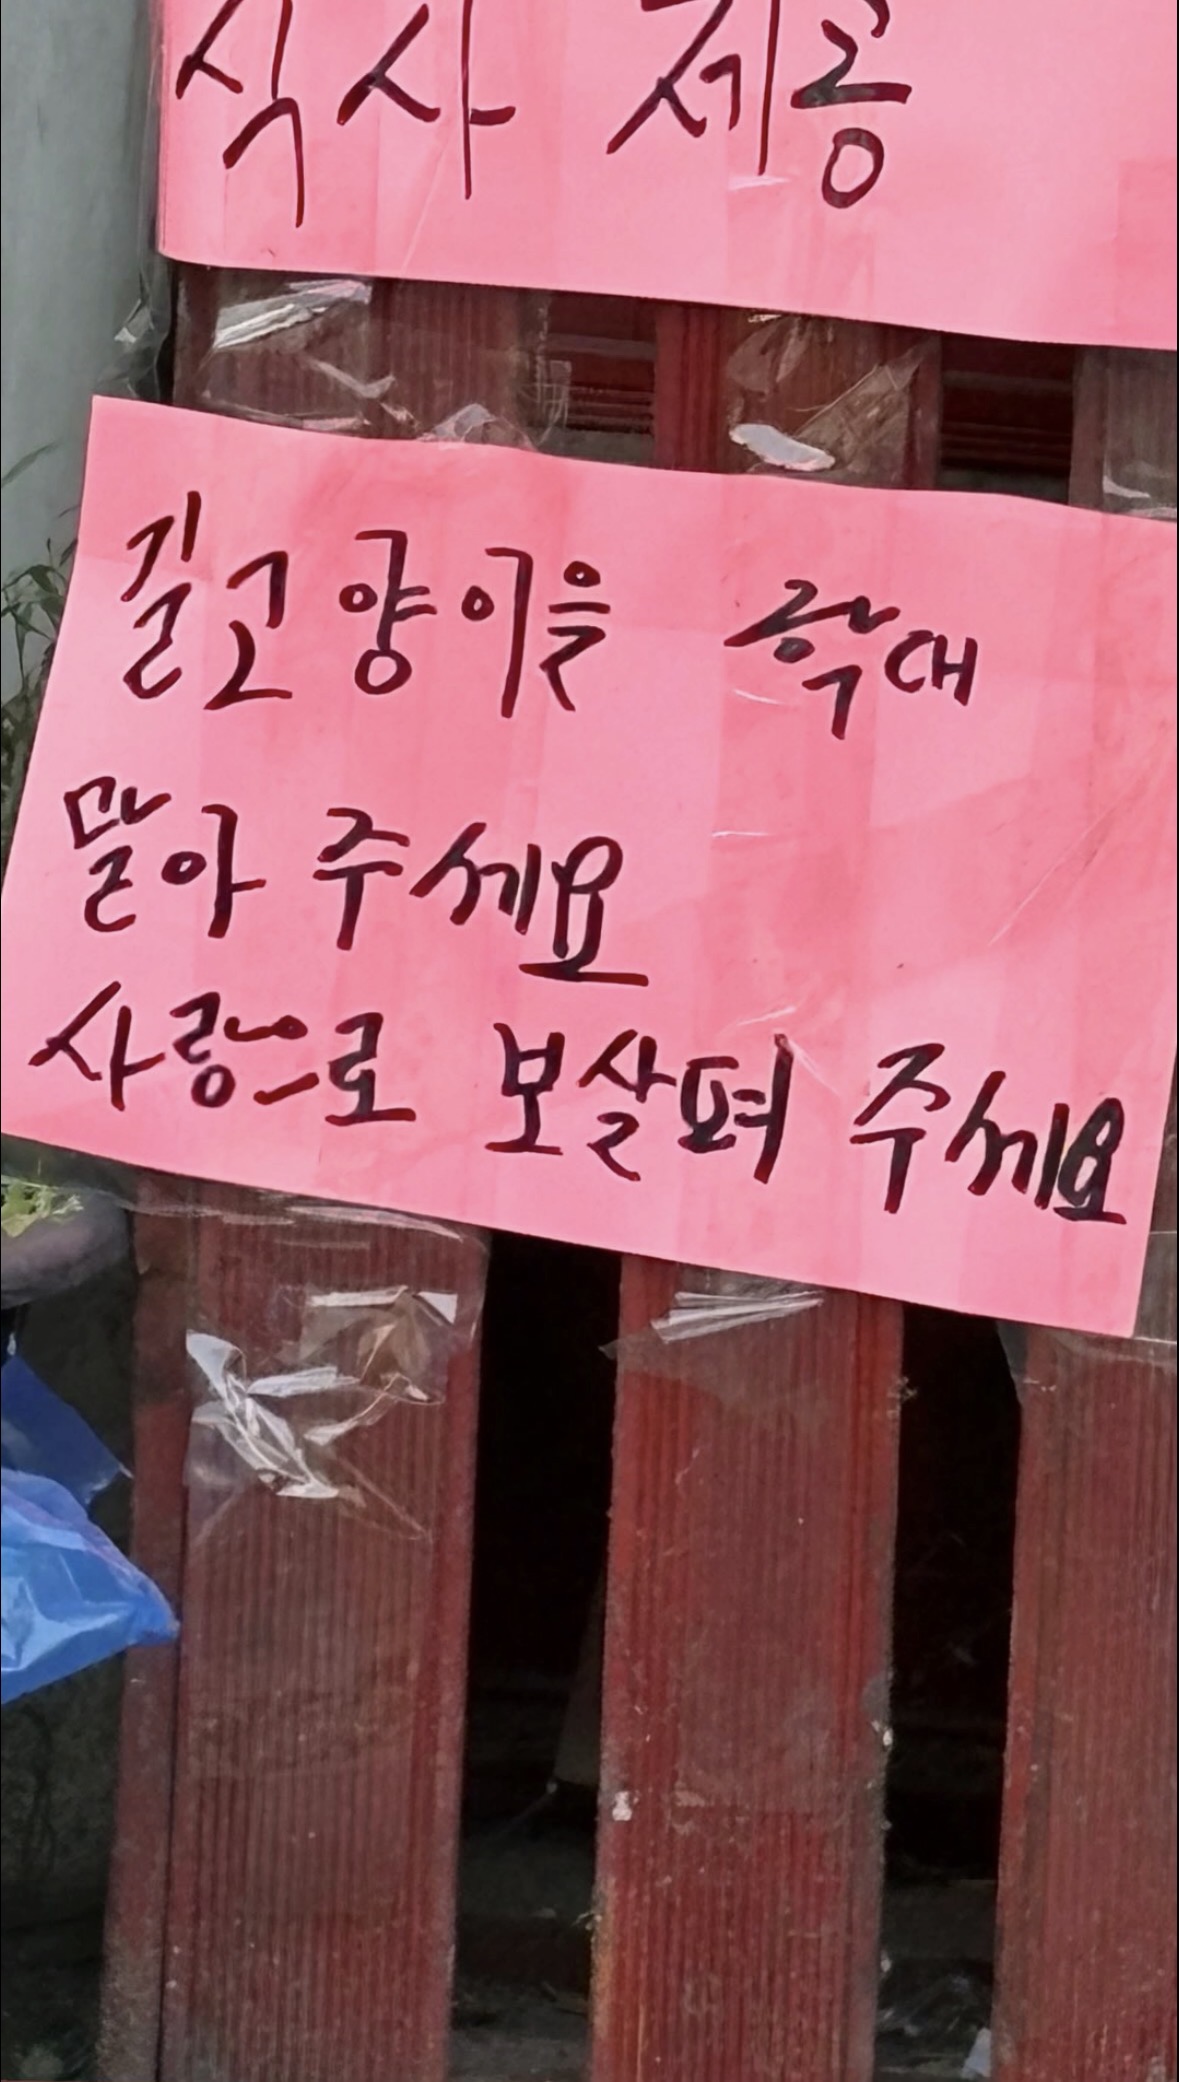 식사 제공
길고양이을 학대
말아 주세요
사랑으로 보살펴 주세요